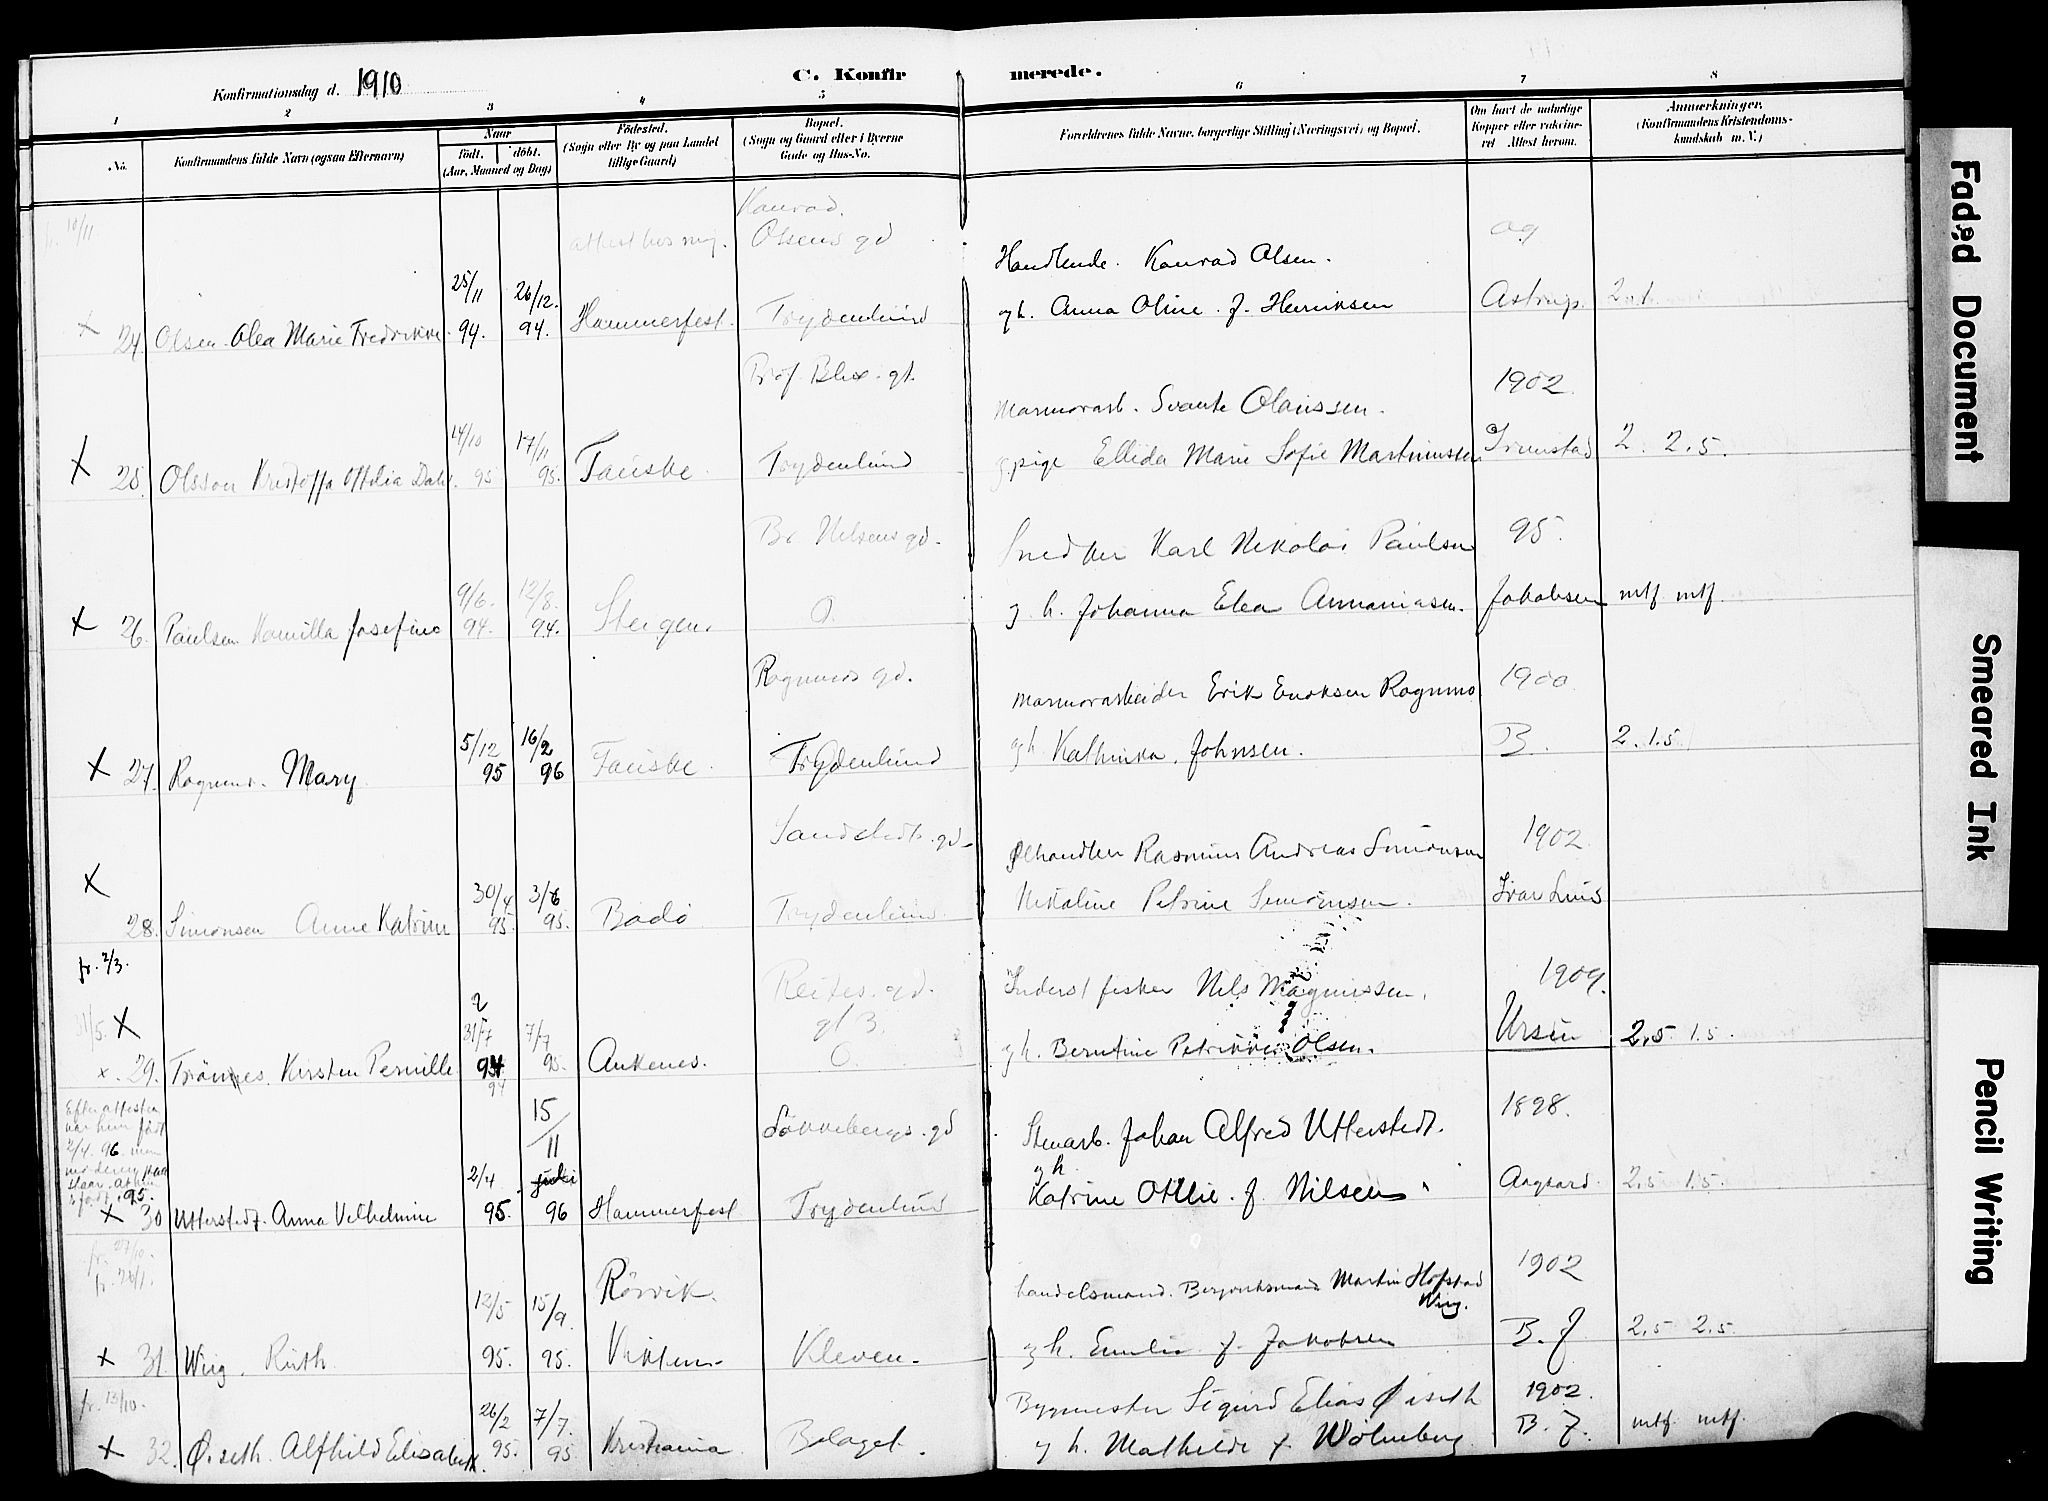 Konfirmationsdag d. 1910
C. Konfirmerede.
1 2 3 4 5 6 7 8
No. Konfirmandens fulde Navn (ogsaa Efternavn)
Naar født. døbt. (Aar, Maaned og Dag)
Fødested. (Sogn eller By og paa Landet tillige Gaard)
Bopæl. (Sogn og Gaard eller i Byerne Gade og Hus-No.
Forældrenes fulde Navne, borgerlige Stilling (Næringsvei) og Bopæl.
Om havt de naturlige Kopper eller vakcineret Attest herom.
Anmærkninger. (Konfirmandens Kristendomskundskab m. V.)
10/11 attest hos mig. Konrad Olsens gd
Handlende. Konrad Olsen.
x 24. Olsen Olea Marie Fredrikke 25/11 94. 26/12. 94. Hammerfest. Frydenlund
g h. Anna Oline f. Henriksen Astrup.
Prof. Blix. gt. 1902
Marmorarb. Svante Olaussen.
x 25. Olsson 14/10 95 17/11 95. Fauske Frydenlund
pige Ellida Marie Sofie Martinussen 2. 2.5.
Nilsens gd. 95.
Snedker Karl Nikolai Paulsen
x 26. Paulsen Kamilla Josefine 9/6. 94. 12/8. 94. Steigen. O.
g. h. Johanna Elea Annaniasen. Jakobsen mtf mtf
Rognmos gd. 1900
Marmorarbeider Erik Enoksen Rognmo
x 27. Rognmo. Mary 5/12 95 16/2 96 Fauske. Frydenlund
g h. Kathinka Johnsen. B. 2. 1.5
Sandstedts gd. 1902.
x
Rasmus Andreas Simonsen
28. Simonsen Anne Katrine 30/4 95. 3/6 95. Bodø Frydenlund.
Nikoline Petrine Simonsen. Ivar Lund
fr. 2/3. 1909.
Inderst fisker Nils Magnussen.
31/5. x gt 3.
x 29. Kirsten Pernille 2 31/7 94 94 7/7 95. Ankenes. O
g h. Berntine Petrikke Olsen. 2.5 1.5
Efter attesten var hun født 2/4. 96. men moderen paastaar. at hun er født i 95.
15/11 gd 1898.
Stenarb. Johan Alfred Utterstedt.
x 30 Utterstedt. Anna Vilhelmine 2/4 95. juli 96 Hammerfest Frydenlund
g h Katrine Otilie. f. Nilsen Aagaard. 2.5 1.5.
fr. 27/10. fr. 28/1. Rørvik. 1902
handelsmand. Martin Hofstad Wiig.
x 31. Wiig. Ruth 12/5 95. 15/9. 95. Vikten Kleven.
g h. Emilie f. Jakobsen B. J 2.5 2.5
fr. 13/10. 1902.
Bygmester Sigurd Elias Øiseth
x 32. Øiseth. Alfhild Elisabeth. 26/2 95. 7/7. 95 Kristiania Bolaget.
g h. Mathilde f Wolmberg B. J. mtf mtf.
Faded Document
Smeared Ink
Pencil Writing